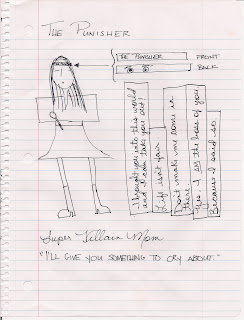 THE PUNISHER
THE PUNISHER
FRONT
BACK
I brought you into this world
and I can take you out!
Life isn't fair
Don't make me come in
there.
Yes - I am the boss of you
Because I said so
Super Villain Mom
"I'LL GIVE YOU SOMETHING TO CRY ABOUT."